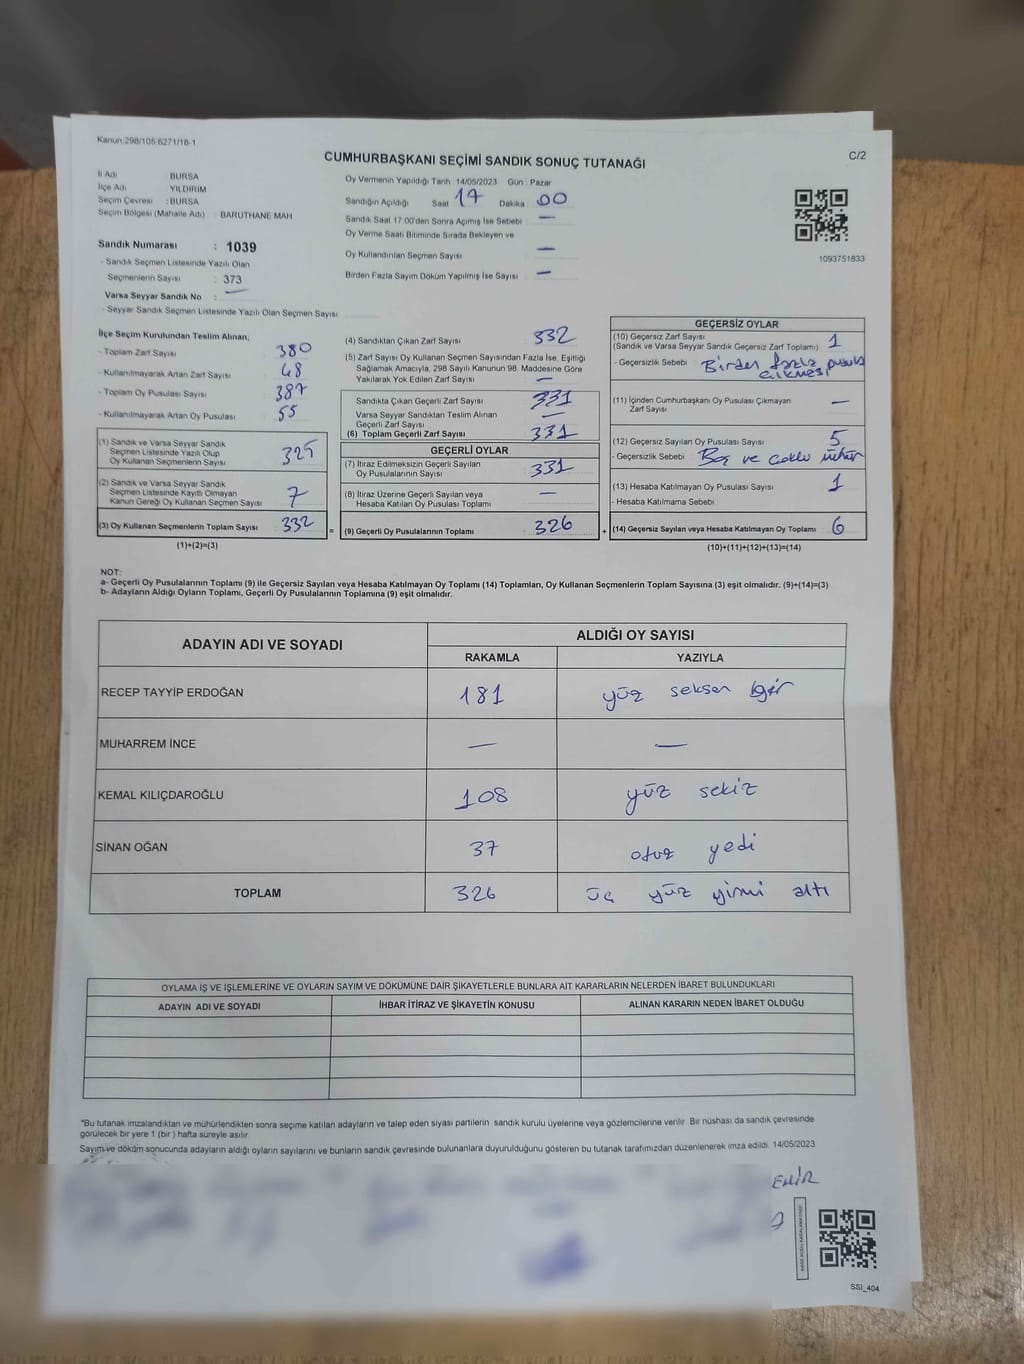 Kanun:298/105,6271/18-1
CUMHURBAŞKANI SEÇİMİ SANDIK SONUÇ TUTANAĞI
C/2
İl Adı BURSA
İlçe Adı YILDIRIM
Seçim Çevresi : BURSA
Seçim Bölgesi (Mahalle Adı) : BARUTHANE MAH
Sandık Numarası : 1039
- Sandık Seçmen Listesinde Yazılı Olan
Seçmenlerin Sayısı : 373
Varsa Seyyar Sandık No : —
- Seyyar Sandık Seçmen Listesinde Yazılı Olan Seçmen Sayısı :
Oy Vermenin Yapıldığı Tarih :14/05/2023 Gün : Pazar
Sandığın Açıldığı Saat 17 Dakika 00
Sandık Saat 17:00'den Sonra Açılmış İse Sebebi : —
Oy Verme Saati Bitiminde Sırada Bekleyen ve
Oy Kullandırılan Seçmen Sayısı : —
Birden Fazla Sayım Döküm Yapılmış İse Sayısı : —
1093751833
İlçe Seçim Kurulundan Teslim Alınan;
- Toplam Zarf Sayısı : 380
- Kullanılmayarak Artan Zarf Sayısı : 48
- Toplam Oy Pusulası Sayısı : 387
- Kullanılmayarak Artan Oy Pusulası : 55
(1) Sandık ve Varsa Seyyar Sandık
Seçmen Listesinde Yazılı Olup
Oy Kullanan Seçmenlerin Sayısı 325
(2) Sandık ve Varsa Seyyar Sandık
Seçmen Listesinde Kayıtlı Olmayan
Kanun Gereği Oy Kullanan Seçmen Sayısı 7
(3) Oy Kullanan Seçmenlerin Toplam Sayısı 332
(1)+(2)=(3)
=
(4) Sandıktan Çıkan Zarf Sayısı : 332
(5) Zarf Sayısı Oy Kullanan Seçmen Sayısından Fazla İse, Eşitliği
Sağlamak Amacıyla, 298 Sayılı Kanunun 98. Maddesine Göre
Yakılarak Yok Edilen Zarf Sayısı : —
Sandıkta Çıkan Geçerli Zarf Sayısı : 331
Varsa Seyyar Sandıktan Teslim Alınan
Geçerli Zarf Sayısı : —
(6) Toplam Geçerli Zarf Sayısı : 331
GEÇERLİ OYLAR
(7) İtiraz Edilmeksizin Geçerli Sayılan
Oy Pusulalarının Sayısı : 331
(8) İtiraz Üzerine Geçerli Sayılan veya
Hesaba Katılan Oy Pusulası Toplamı : —
(9) Geçerli Oy Pusulalarının Toplamı : 326
+
GEÇERSİZ OYLAR
(10) Geçersiz Zarf Sayısı
(Sandık ve Varsa Seyyar Sandık Geçersiz Zarf Toplamı) : 1
- Geçersizlik Sebebi : Birden fazla pusula
çıkması
(11) İçinden Cumhurbaşkanı Oy Pusulası Çıkmayan
Zarf Sayısı : —
(12) Geçersiz Sayılan Oy Pusulası Sayısı : 5
- Geçersizlik Sebebi : Boş ve çoklu mühür
(13) Hesaba Katılmayan Oy Pusulası Sayısı : 1
- Hesaba Katılmama Sebebi :
(14) Geçersiz Sayılan veya Hesaba Katılmayan Oy Toplamı : 6
(10)+(11)+(12)+(13)=(14)
NOT:
a- Geçerli Oy Pusulalarının Toplamı (9) ile Geçersiz Sayılan veya Hesaba Katılmayan Oy Toplamı (14) Toplamları, Oy Kullanan Seçmenlerin Toplam Sayısına (3) eşit olmalıdır. (9)+(14)=(3)
b- Adayların Aldığı Oyların Toplamı, Geçerli Oy Pusulalarının Toplamına (9) eşit olmalıdır.
ADAYIN ADI VE SOYADI
ALDIĞI OY SAYISI
RAKAMLA YAZIYLA
RECEP TAYYİP ERDOĞAN 181 yüz seksen bir
MUHARREM İNCE — —
KEMAL KILIÇDAROĞLU 108 yüz sekiz
SİNAN OĞAN 37 otuz yedi
TOPLAM 326 üç yüz yirmi altı
OYLAMA İŞ VE İŞLEMLERİNE VE OYLARIN SAYIM VE DÖKÜMÜNE DAİR ŞİKAYETLERLE BUNLARA AİT KARARLARIN NELERDEN İBARET BULUNDUKLARI
ADAYIN ADI VE SOYADI İHBAR İTİRAZ VE ŞİKAYETİN KONUSU ALINAN KARARIN NEDEN İBARET OLDUĞU
*Bu tutanak imzalandıktan ve mühürlendikten sonra seçime katılan adayların ve talep eden siyasi partilerin sandık kurulu üyelerine veya gözlemcilerine verilir. Bir nüshası da sandık çevresinde
görülecek bir yere 1 (bir ) hafta süreyle asılır.
Sayım ve döküm sonucunda adayların aldığı oyların sayılarını ve bunların sandık çevresinde bulunanlara duyurulduğunu gösteren bu tutanak tarafımızdan düzenlenerek imza edildi. 14/05/2023
EMİR
SSI_404